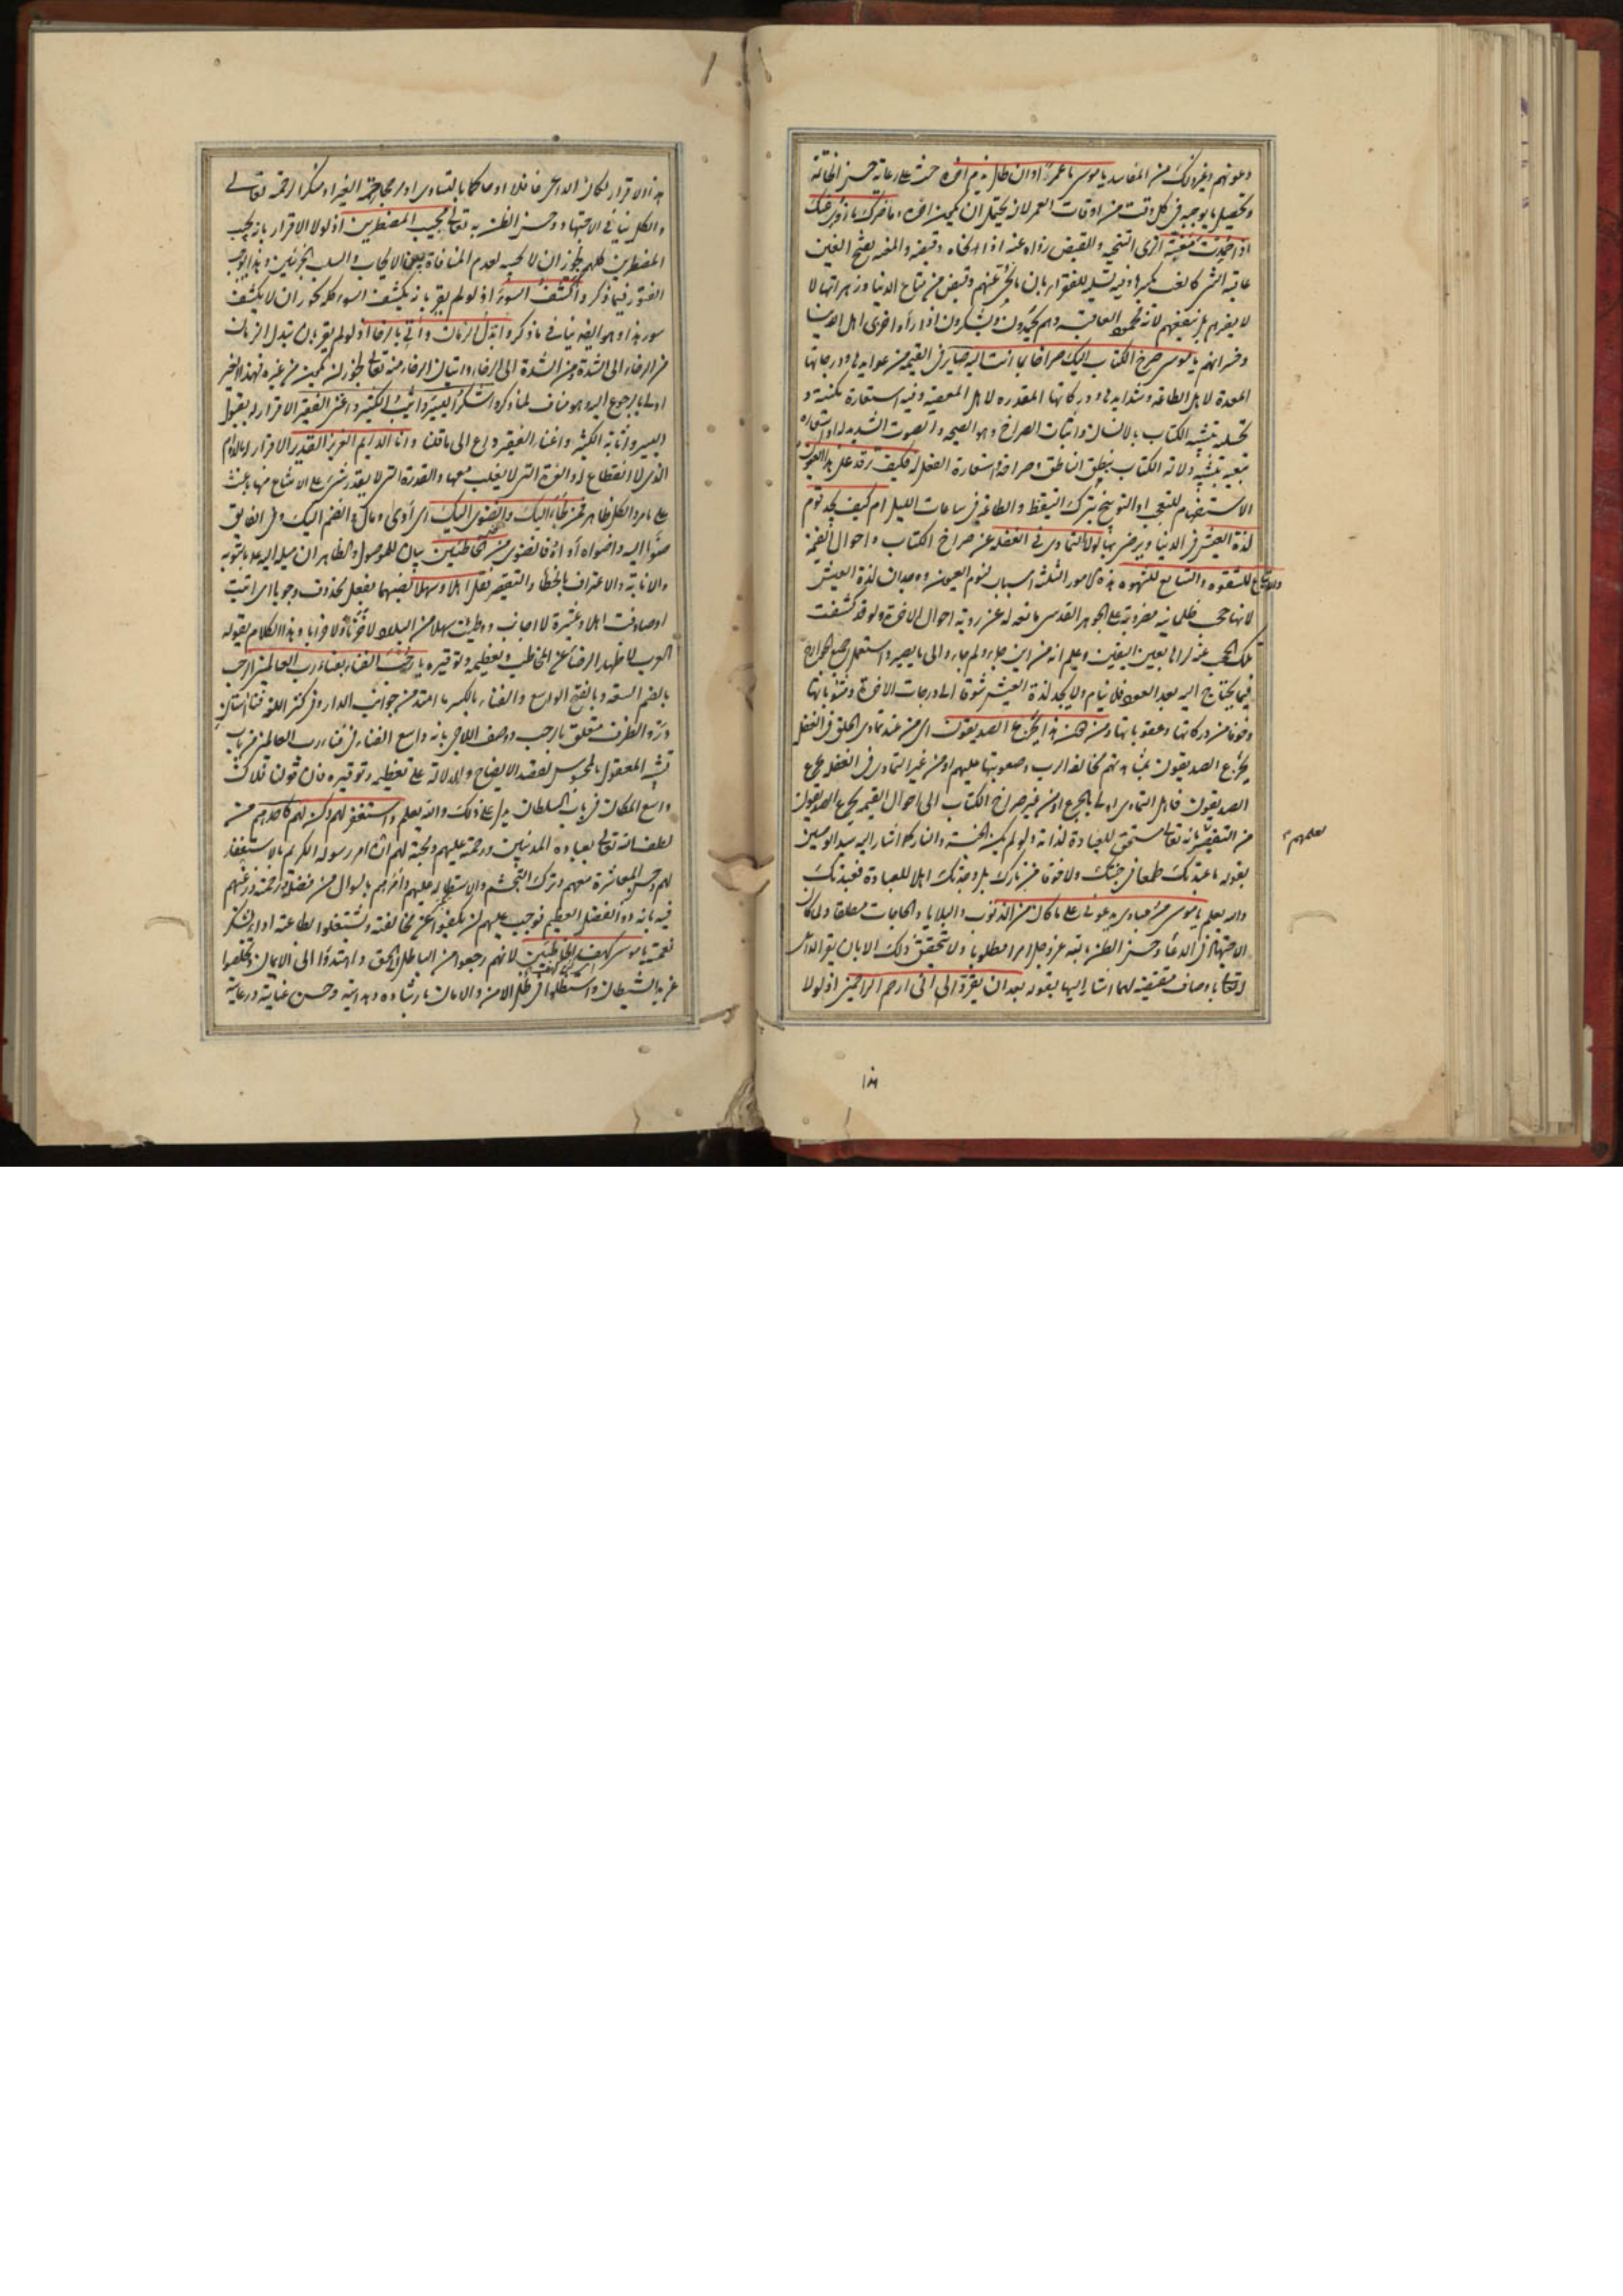 دعوتهم وغيرذلك من المفاسد يا موسى ما عمر وان طال يذم اخره حث على رعاية حسن الخاتمة
وتحصيل ما يوجبه في كل وقت من اوقات العمر لانه يحتمل ان يكون اخره وما ضرك ما زوى عنك
اذا حمدت مغبته الزى التنحية والقبض زواه عنه اذا نحاه وقبضه والمغبة بفتح الغين
عاقبة الشى كالغب بكسرها وفيه تسلية للفقراء بان ما نحى عنهم وقبض من متاع الدنيا وزهراتها لا
لا يضرهم بل ينفعهم لانه محمود العاقبة وهم يحمدون ويشكرون اذا رأوا خزى اهل الدنيا
وخسرانهم يا موسى صرخ الكتاب اليك صراخا بما انت اليه صاير في القيمة من عوايدها ودرجاتها
المعدة لاهل الطاعة وشدايدها ودركاتها المقدره لاهل المعصية وفيه استعارة مكنية و
تخييلية بتشبيه الكتاب بالانسان واثبات الصراخ وهو الصيحة والصوت الشديد له او استعارة
تبعية بتشبيه دلالة الكتاب بنطق الناطق وصراخه واستعارة الفعل له فكيف ترقد على هذا العيون
الاستفهام للتعجب او التوبيخ بترك التيقظ والطاعة في ساعات الليل ام كيف يجد قوم
لذة العيش في الدنيا ويرضى بها لولا التمادى في الغفلة عن صراخ الكتاب واحوال القيمة
والاتباع للشقوة والتتابع للشهوة هذه الامور الثلثة اسباب لنوم العيون ووجدان لذة العيش
لانها حجب ظلمانية مضروبة على الجوهر القدسى مانعة له عن روية احوال الاخرة ولو قد كشفت
تلك الحجب عنه لراها بعين اليقين وعلم انه من اين جاء ولم جاء والى ما يصير واستعمل جميع الجوارح
فيما يحتاج اليه بعد العود فلا ينام ولا يجد لذة العيش شوقا الى درجات الاخرة ومثوباتها
وخوفا من دركاتها وعقوباتها ومن هذا يجزع الصديقون اى من عند تمادى الخلق في الغفلة
يجزع الصديقون بمشاهدتهم مخالفة الرب وصعوبتها عليهم او من غير التمادى في الغفلة يجزع
الصديقون فاهل التمادى اولى بالجزع او من غير صراخ الكتاب الى احوال القيمة يجزع الصديقون
من التقصير بانه تعالى مستحق للعبادة لذاته ولو لم يكن الجنة والنار كما اشار اليه سيد الوصيين
لعلمهم
بقوله ما عبدتك طمعا في جنتك ولا خوفا من نارك بل وجدتك اهلا للعبادة فعبدتك
والله يعلم يا موسى مر عبادى يدعونى على ما كان من الذنوب والبلايا والحاجات مطلقا ولما كان
الاجتهاد في الدعاء وحسن الظن بالله عز وجل امرا مطلوبا ولا يتحقق ذلك الا بان يقر الداعى
له تعالى باوصاف مقتضية لهما اشار اليها بقوله بعد ان يقروا لى انى ارحم الراحمين اذ لولا
١٨٦
هذا الاقرار لكان الداعى غافلا او حاكما بالتساوى او براحمية الغير او منكرا لرحمته تعالى
والكل ينافى الاجتهاد وحسن الظن به تعالى مجيب المضطرين اذ لولا الاقرار بانه يجيب
المضطرين كلهم لجوز ان لا يجيبه لعدم المنافاة بين الايجاب والسلب الجزئيين وهذا يوجب
الفتور فيما ذكر واكشف السوء اذ لو لم يقر بانه يكشف السوء كله لجوز ان لا يكشف
سوء هذا وهو ايضا ينافى ما ذكر وابدل الزمان وآتى بالرخا اذ لو لم يقر بان تبدل الزمان
من الرخاء الى الشدة ومن الشدة الى الرخاء واتيان الرخاء منه تعالى لجوز ان يكون من غيره فهذا الغير
اولى بالرجوع اليه وهو مناف لما ذكر واشكر اليسير واثيب الكثير واغنى الفقير الاقرار له بقبول
اليسير واثابة الكثير واغناء الفقير داع الى ما قلنا وانا الدايم العزيز القدير الاقرار له بالدوام
الذى لا انقطاع له والعزة التى لا يغلب معها والقدرة التى لا يقدر شى على الامتناع منها باعث
على ما مر والكل ظاهر فمن لجأ اليك وانضوى اليك اى أوى ومال وانضم اليك وفى الفايق
ضوى اليه واضواه اذا اوى فانضوى من الخاطئين بيان للموصول والظاهر ان ميله اليه بالتوبة
والانابة والاعتراف بالخطأ والتقصير فقل اهلا وسهلا نصبهما بفعل محذوف وجوبا اى اتيت
او صادفت اهلا وعشيرة لا اجانب ووطئت سهلا من البلاد لا حزنا ولا خرابا وهذا الكلام يقوله
العرب لاظهار الرضا عن المخاطب وتعظيمه وتوقيره يا رحب الفناء بفناء رب العالمين الرحب
بالضم السعة وبالفتح الواسع والفناء بالكسر ما امتد من جوانب الدار وفى كنز اللغة فنا آستان
در والظرف متعلق بارحب ووصف اللاجى بانه واسع الفناء فى فناء رب العالمين من باب
تشبيه المعقول بالمحسوس لقصد الايضاح والدلالة على تعظيمه وتوقيره فان قولك فلان
واسع المكان فى باب السلطان يدل على ذلك والله يعلم واستغفر لهم وكن لهم كاحدهم من
لطف الله تعالى بعباده المذنبين ورحمته عليهم ومحبته لهم ان امر رسوله الكريم بالاستغفار
لهم وحسن المعاشرة معهم وترك التجشم والاستطالة عليهم وامرهم بالسوال من فضله ورحمته ورغبهم
فيه بانه ذو الفضل العظيم فوجب عليهم ان يكفوا عن مخالفته ويشتغلوا بطاعته اداء لشكر
نعمته يا موسى كهف الخاطئين لانهم رجعوا من الباطل الى الحق واهتدوا الى الايمان وتخلصوا
عن يد الشيطان واستظلوا فى ظل الامن والامان بارشاده وهدايته وحسن عنايته ورعايته